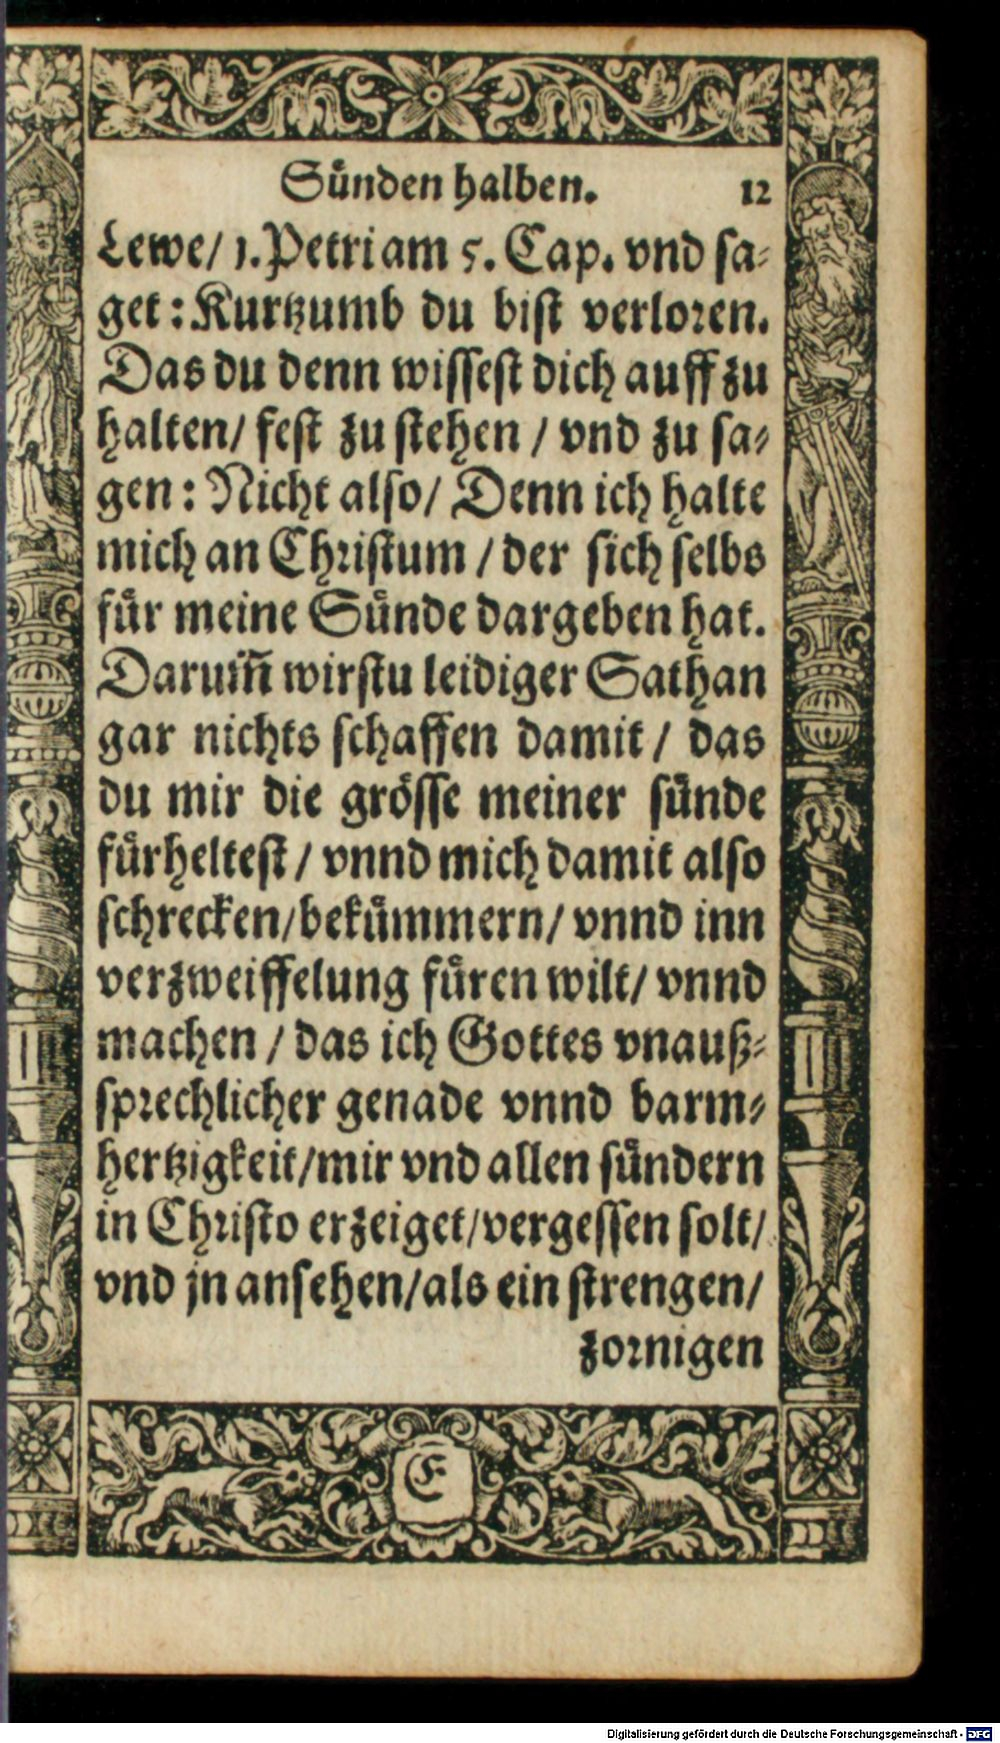 Sünden halben. 12
Lewe/ 1. Petri am 5. Cap. vnd sa-
get: Kurtzumb du bist verloren.
Das du denn wissest dich auff zu
halten/ fest zu stehen / vnd zu sa-
gen: Nicht also/ Denn ich halte
mich an Christum / der sich selbs
für meine Sünde dargeben hat.
Darum̃ wirstu leidiger Sathan
gar nichts schaffen damit / das
du mir die grösse meiner sünde
fürheltest / vnnd mich damit also
schrecken/ bekümmern/ vnnd inn
verzweiffelung füren wilt/ vnnd
machen / das ich Gottes vnauß-
sprechlicher genade vnnd barm-
hertzigkeit/mir vnd allen sündern
in Christo erzeiget/vergessen solt/
vnd jn ansehen/als ein strengen/
zornigen
Digitalisierung gefördert durch die Deutsche Forschungsgemeinschaft - DFG